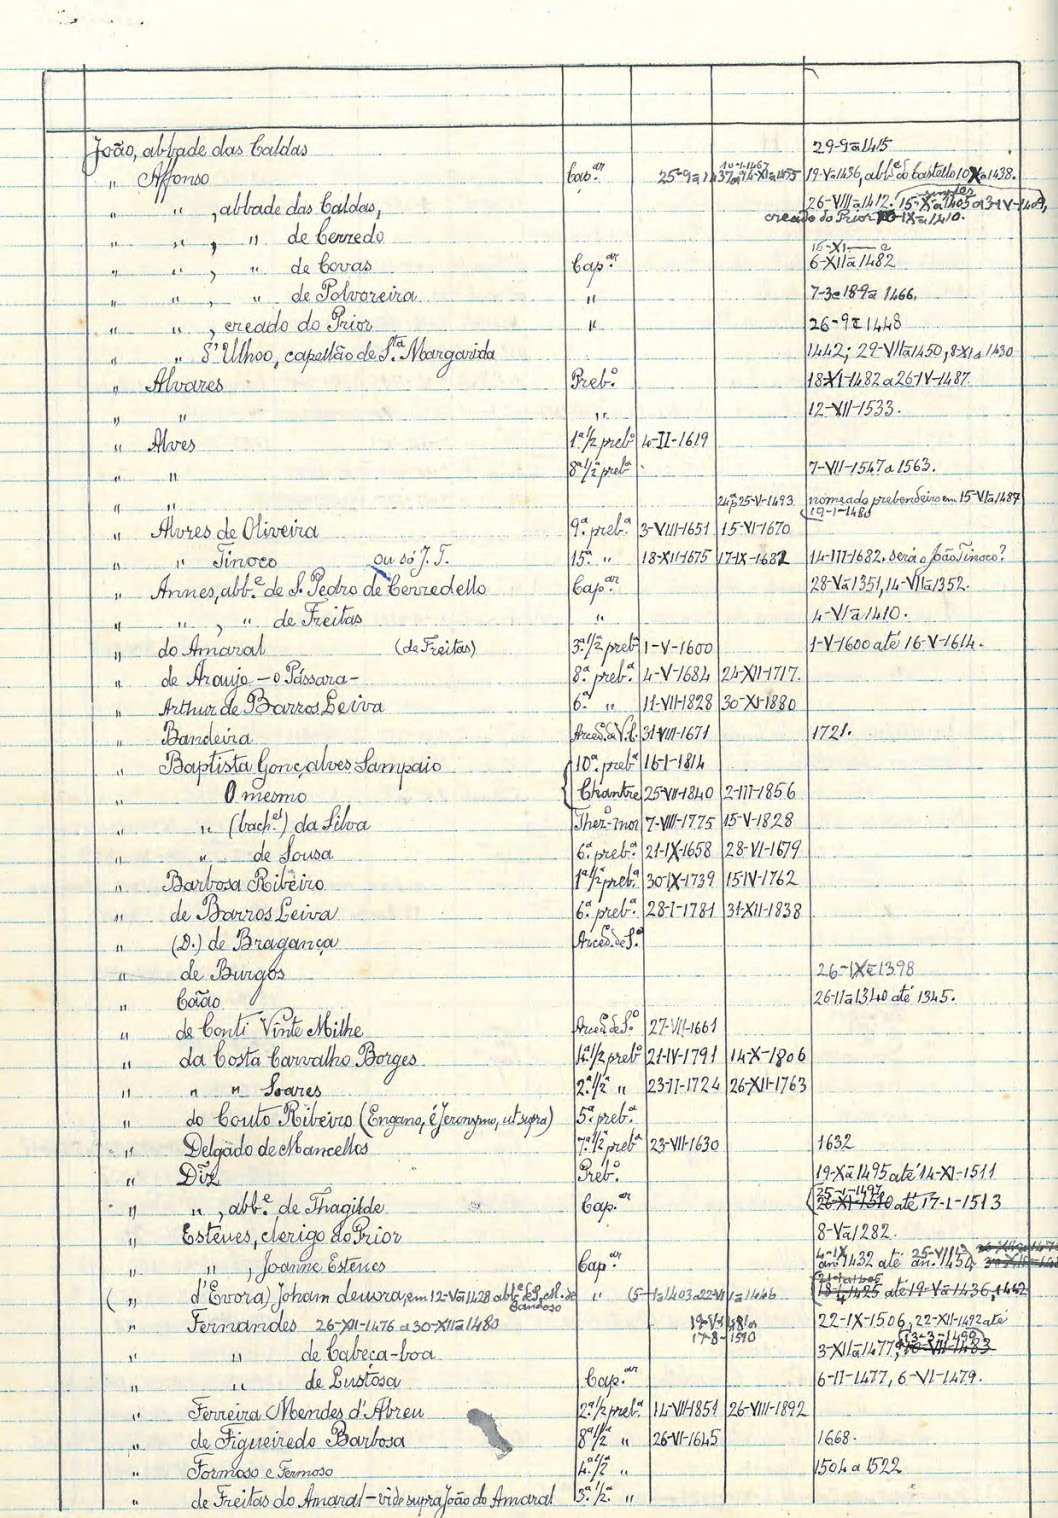 João, abbade das Caldas 29-9-ª1415
" Affonso Cap.ᵃʳ 25-9-ª1437 10-1-1467 a 14-XI-ª1475 19-V-ª1436, abb.ᵉ do Castello 10-X-ª1438.
" " , abbade das Caldas, 26-VIII-ª1412. 15-X-ª1405 a 3-IV-1409, simples
creado do Prior -IX-ª1410.
" " , " de Cerredo
" " , " de Covas Cap.ᵃʳ 16-XI- e 6-XII-ª1482
" " , " de Polvoreira " 7-3 e 18-9-ª 1466.
" " , creado do Prior " 26-9-ª1448
" " d'Ulhoo, capellão de S.ᵗᵃ Margarida 1442; 29-VII-ª1450, 8-XI-ª1430
" Alvares Preb.º 18-XI-1482 a 26-IV-1487.
" " " 12-XII-1533.
" Alves 1.ª 1/2 preb.ª 4-II-1619
" " 8.ª 1/2 preb.ª 7-VII-1547 a 1563.
" " 25-V-1493 nomeado prebendeiro em 15-VI-ª1487
19-1-1480
" Alvres de Oliveira 9.ª preb.ª 3-VIII-1651 15-VI-1670
" " Tinoco ou só J. T. 15.ª " 18-XII-1675 17-IX-1682 14-III-1682. será o João Tinoco?
" Annes, abb.ᵉ de S. Pedro de Cerredello Cap.ᵃʳ 28-V-ª1351, 14-VII-ª1352.
" " , " de Freitas " 4-VI-ª1410.
" do Amaral (de Freitas) 3.ª 1/2 preb.ª 1-V-1600 1-V-1600 até 16-V-1614.
" de Araujo - o Pássara - 8.ª preb.ª 4-V-1684 24-XII-1717.
" Arthur de Barros Leiva 6.ª " 11-VII-1828 30-XI-1880
" Bandeira Arced. de V.ª C. 31-VIII-1671 1721.
" Baptista Gonçalves Sampaio 10.ª preb.ª 16-1-1814
" O mesmo Chantre 25-VII-1840 2-III-1856
" " (bach.ᵉˡ) da Silva Thez.º-mor 7-VIII-1775 15-V-1828
" " de Sousa 6.ª preb.ª 21-IX-1658 28-VI-1679
" Barbosa Ribeiro 1.ª 1/2 preb.ª 30-IX-1739 15-IV-1762
" de Barros Leiva 6.ª preb.ª 28-I-1781 31-XII-1838
" (D.) de Bragança Arced. de S.º
" de Burgos 26-IX-ª1398
" Cão 26-II-ª1340 até 1345.
" de Conti Vinte Milhe Arced. de S.º 27-VII-1661
" da Costa Carvalho Borges 1.ª 1/2 preb.ª 21-IV-1791 14-X-1806
" " " Soares 2.ª 1/2 " 23-II-1724 26-XII-1763
" do Couto Ribeiro (Engano, é Jeronymo, ut supra) 5.ª preb.ª
" Delgado de Mancellos 7.ª 1/2 preb.ª 23-VII-1630 1632
" Diz Preb.º 19-X-ª1495 até 14-XI-1511
" " , abb.ᵉ de Thagilde Cap.ᵃʳ 25-1-1497 26-XI-1510 até 17-1-1513
" Esteves, clerigo do Prior 8-V-ª1282.
" " , Joanne Esteves Cap.ᵃʳ 4-IX an.1432 até 25-VIII an.1454
( " d'Evora) Joham devora, em 12-V-ª1428 abb.ᵉ de S. M. de Candoso " (5-1-ª1403 a 22-VI-ª1446 18-4-1425 até 19-V-ª1436, 1442
" Fernandes 26-XII-1476 a 30-XII-ª1480 19-V-1481 a 17-8-1510 22-IX-1506, 22-XII-1492 até
" " de Cabeça-boa 3-XII-ª1477, 13-3-1499 10-VII-1483
" " de Lustosa Cap.ᵃʳ 6-II-1477, 6-VI-1479.
" Ferreira Mendes d'Abreu 2.ª 1/2 preb.ª 14-VII-1851 26-VIII-1892
" de Figueiredo Barbosa 8.ª 1/2 " 26-VI-1645 1668.
" Formoso e Fermoso 4.ª 1/2 " 1504 a 1522
" de Freitas do Amaral - vide supra João do Amaral 3.ª 1/2 "